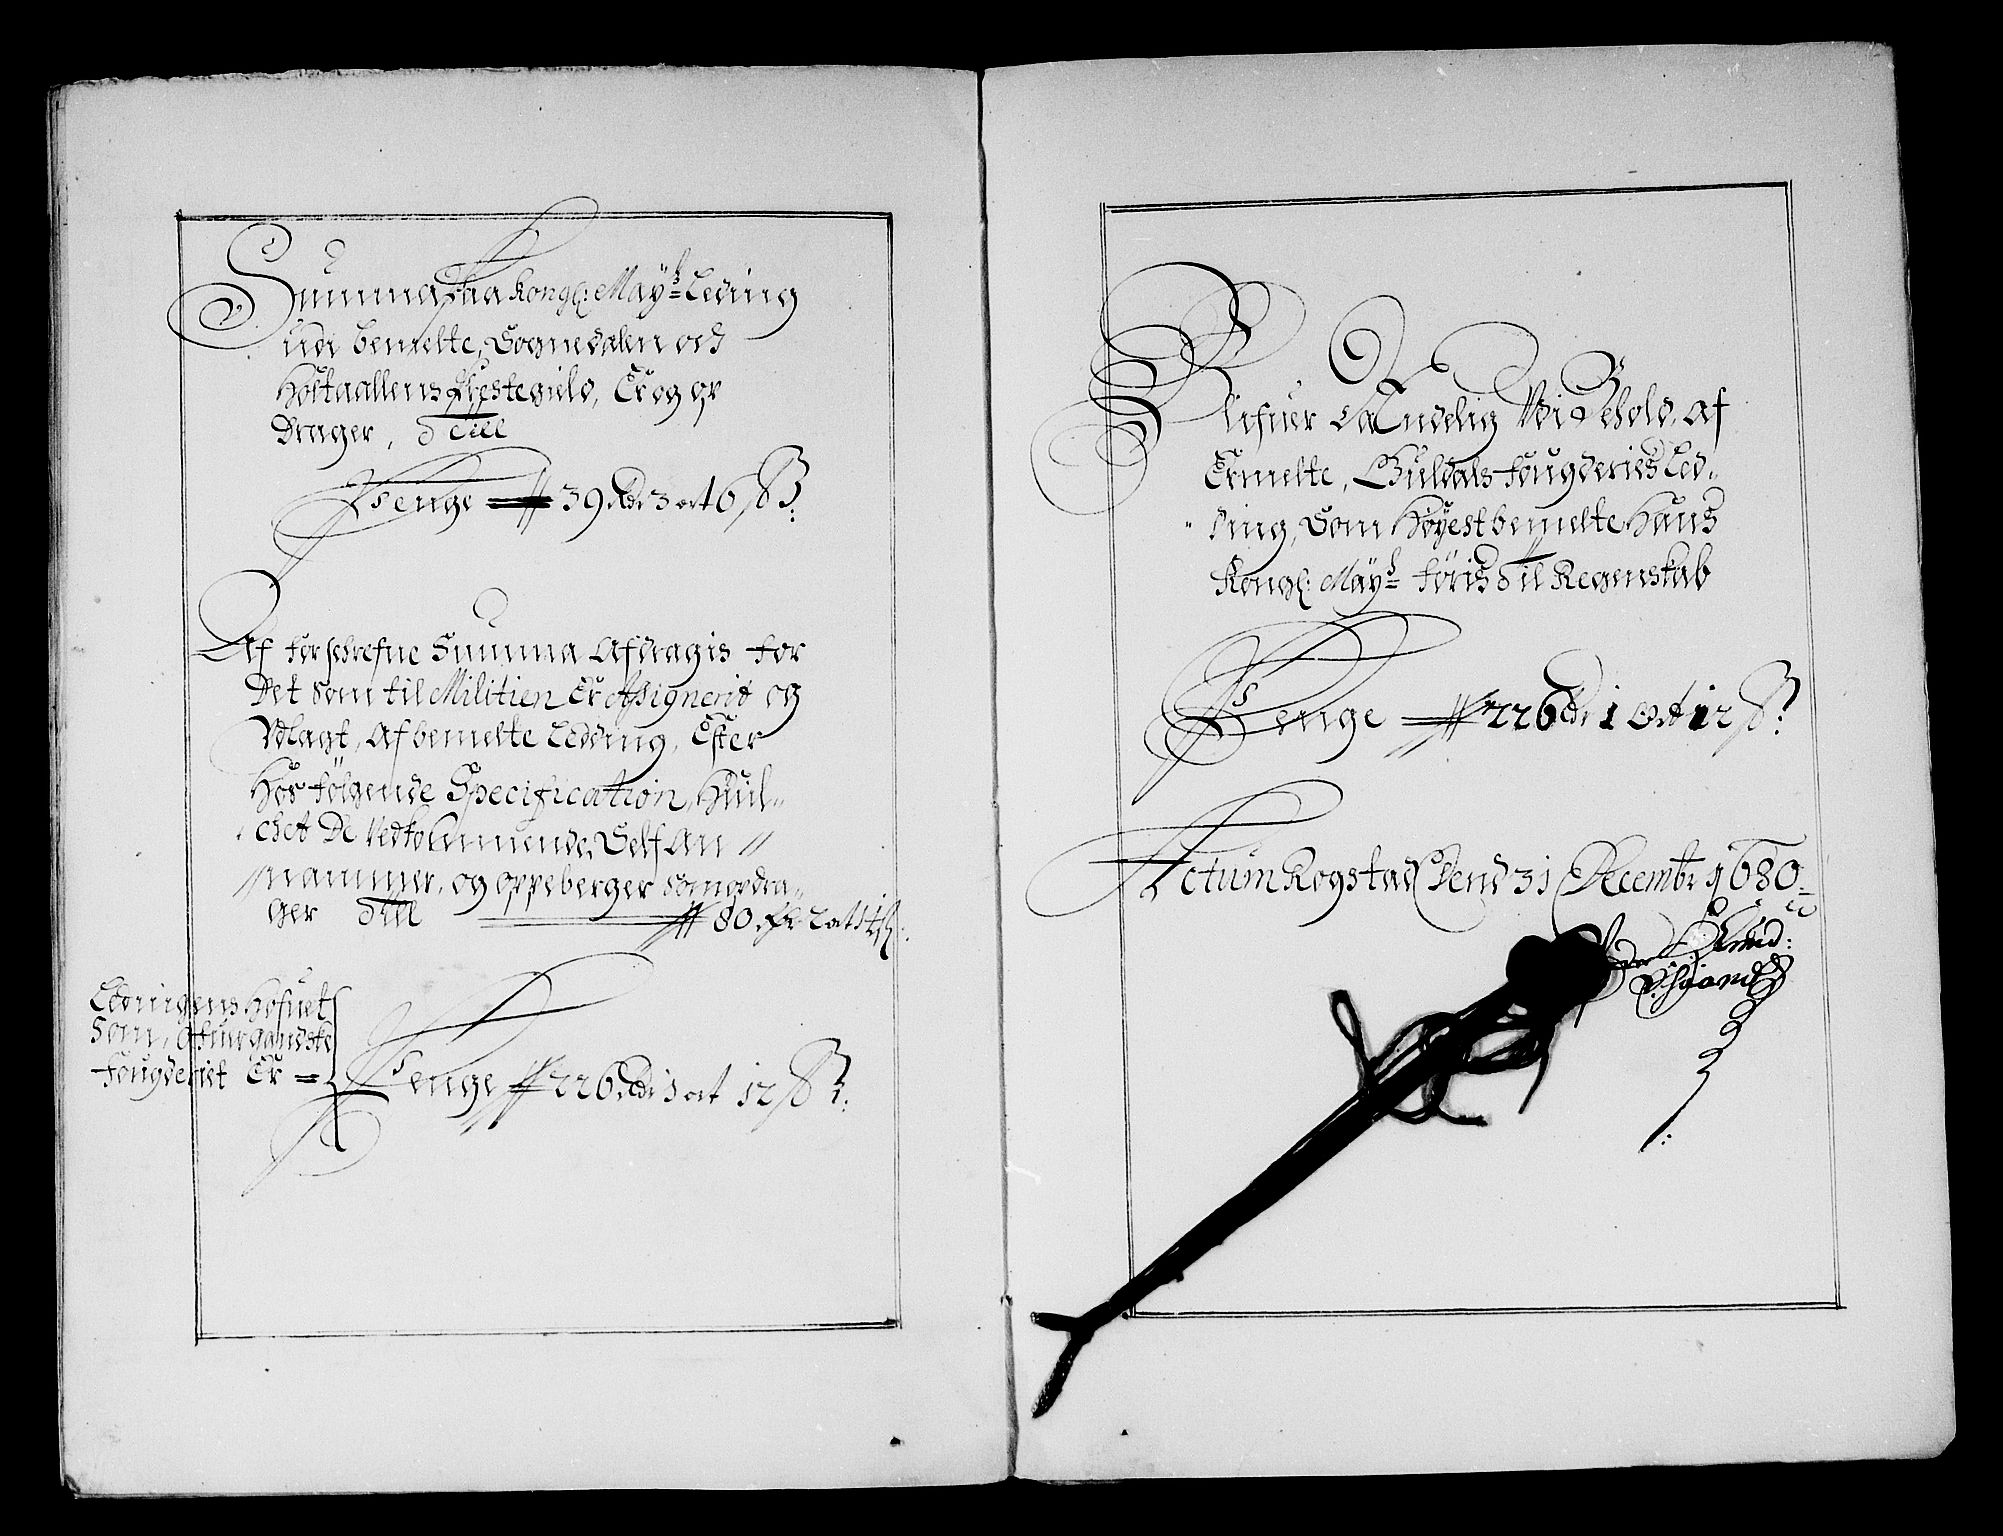 Summa Paa Kongl: Mayts Leding
udi bemelte, Sognedalen och
Holtaallens Prestegield, Er og op
Drager, Till
Penge 39 Rdr 3 ort 6 ß:
Af forschrefne Summa Afdragis for
Det som til Militien Er Assignerit og
Vdlagt, Af bemelte Ledding, Efter
Hos følgende Specification, Huil-
chet De Vedkommende, Self An
nammer, og oppeberger som opdra-
ger Till 80 Rdr 2 ort
Ledningens Hofuet
Som, Ofuer gandske
Fougderiet Er =
Penge 226 Rdr 1 ort 12 ß:
Blifuer Endelig Vdi Behold, af
Ermelte, Guldals Fougderies Led-
ding, Som Høyest bemelte Hans
Kongl: Mayt føris Til Regenskab
Penge 226 Rdr 1 Ort 12 ß:
Actum Rogstad Dend 31 Decembr 1680